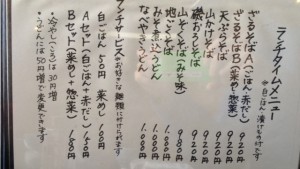 ランチタイムメニュー
※白ごはん 漬けもの付です
ざるそばA(白ごはん・赤だし) 920円
ざるそばB(菜めし・惣菜) 920円
天ぷらそば 920円
山かけそば 920円
おろしそば 920円
地どりそば(みそ味) 980円
山かけそば 1.000円
みそ煮込うどん 1.000円
なべやきうどん 1.000円
ランチサービス お好きな麺類に付けられます
白ごはん 50円 菜めし 100円
Aセット(白ごはん+赤だし) 150円
Bセット(菜めし+惣菜) 180円
※冷やし(ころ)は30円増
※うどんは50円増で変更できます